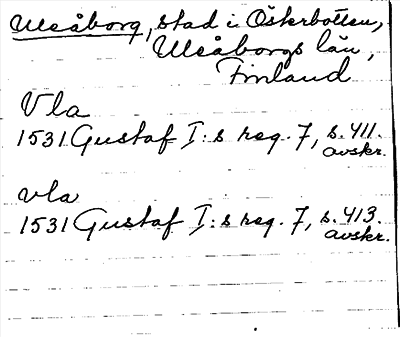 Uleåborg, stad i Österbotten,
Uleåborgs län,
Finland
Vla
1531 Gustaf I:s reg. 7, s. 411.
avskr.
vla
1531 Gustaf I:s reg. 7, s. 413.
avskr.